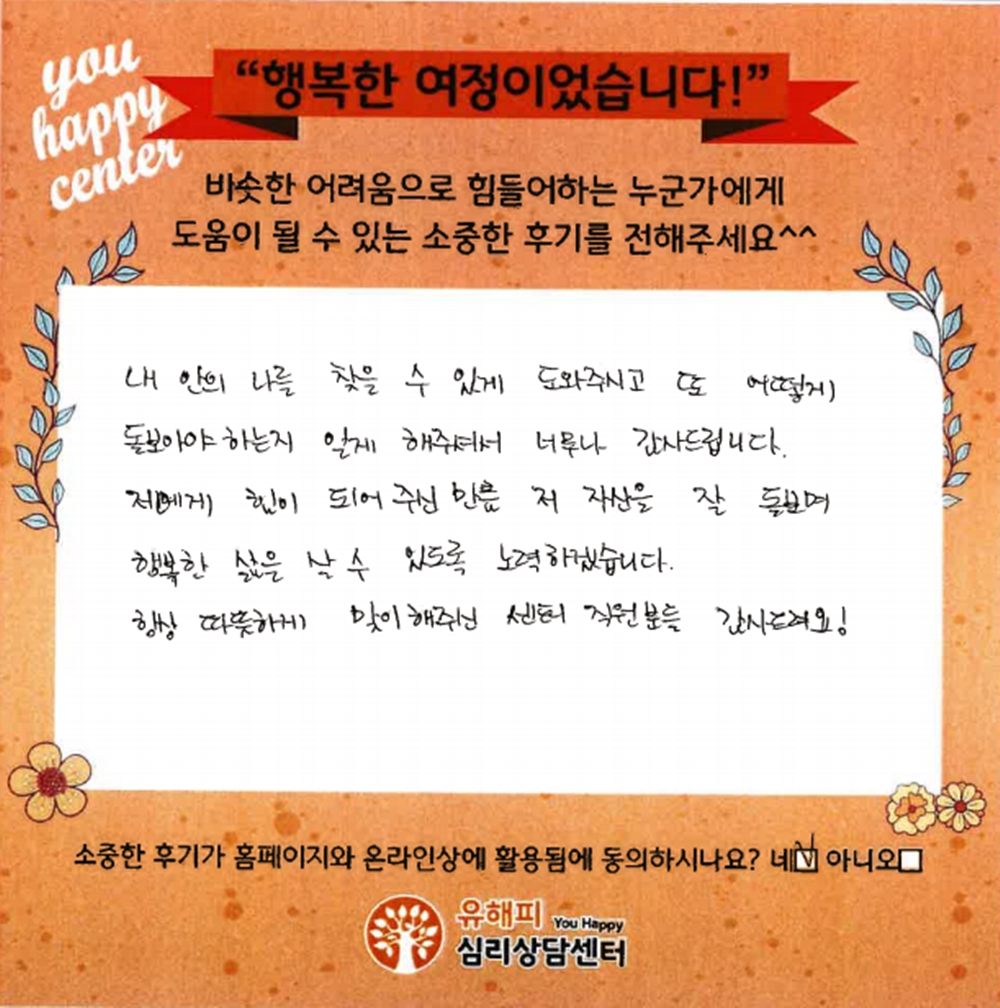 you
happy
center
“행복한 여정이었습니다!”
비슷한 어려움으로 힘들어하는 누군가에게
도움이 될 수 있는 소중한 후기를 전해주세요^^
내 안의 나를 찾을 수 있게 도와주시고 또 어떻게
돌보아야 하는지 알게 해주셔서 너무나 감사드립니다.
저에게 힘이 되어 주신 만큼 저 자신을 잘 돌보며
행복한 삶을 살 수 있도록 노력하겠습니다.
항상 따뜻하게 맞이해주신 센터 직원분들 감사드려요!
소중한 후기가 홈페이지와 온라인상에 활용됨에 동의하시나요? 네☑ 아니오☐
유해피 You Happy
심리상담센터